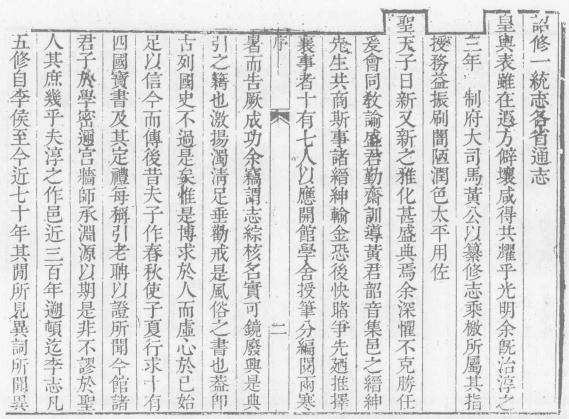 詔修一統志各省通志
皇輿表雖在遐方僻壤咸得共耀乎光明余旣治淳之
三年　制府大司馬黃公以纂修志乘檄所屬其指
授務益振刷闇陋潤色太平用佐
聖天子日新又新之雅化甚盛典焉余深懼不克勝任
爰會同敎諭盛君勤齋訓導黃君韶音集邑之縉紳
先生共商斯事諸縉紳輸金恐後快賭爭先廼推擇
襄事者十有七人以應開館學舍授筆分編閱兩寒
序
二
暑而吿厥成功余竊謂志綜核名實可鏡廢興是典
引之籍也激揚濁淸足垂勸戒是風俗之書也蓋卽
古列國史不過是矣惟是博求於人而虛心於已始
足以信今而傳後昔夫子作春秋使子夏行求十有
四國寶書及其定禮每稱引老聃以證所聞今館諸
君子於學密邇宫牆師承淵源以期是非不謬於聖
人其庶幾乎夫淳之作邑近三百年遡頓迄李志凡
五修自李侯至今近七十年其閒所見異詞所聞異